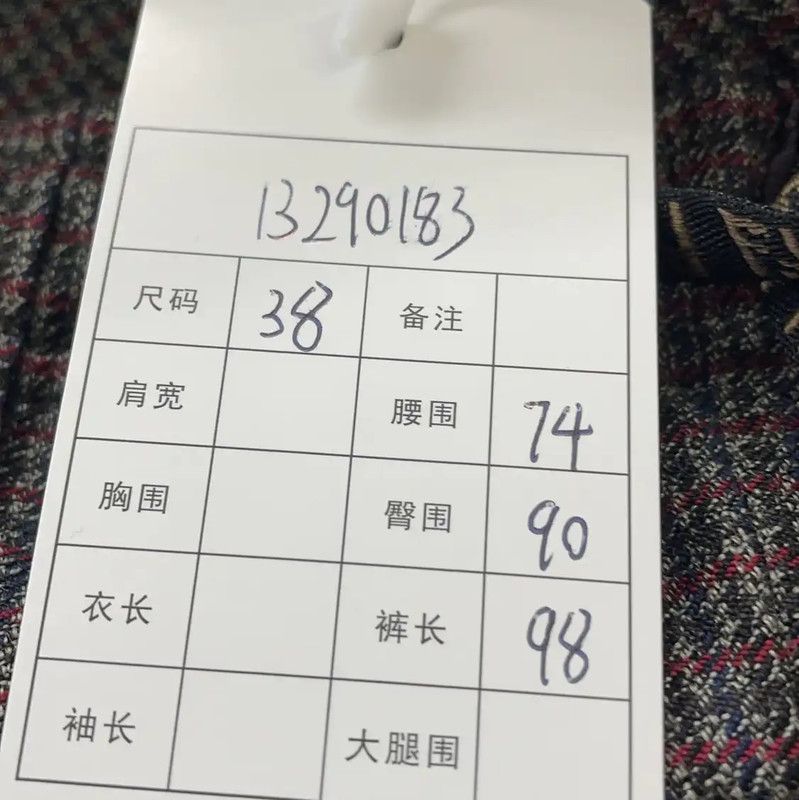 13290183
尺码 38 备注
肩宽 腰围 74
胸围 臀围 90
衣长 裤长 98
袖长 大腿围